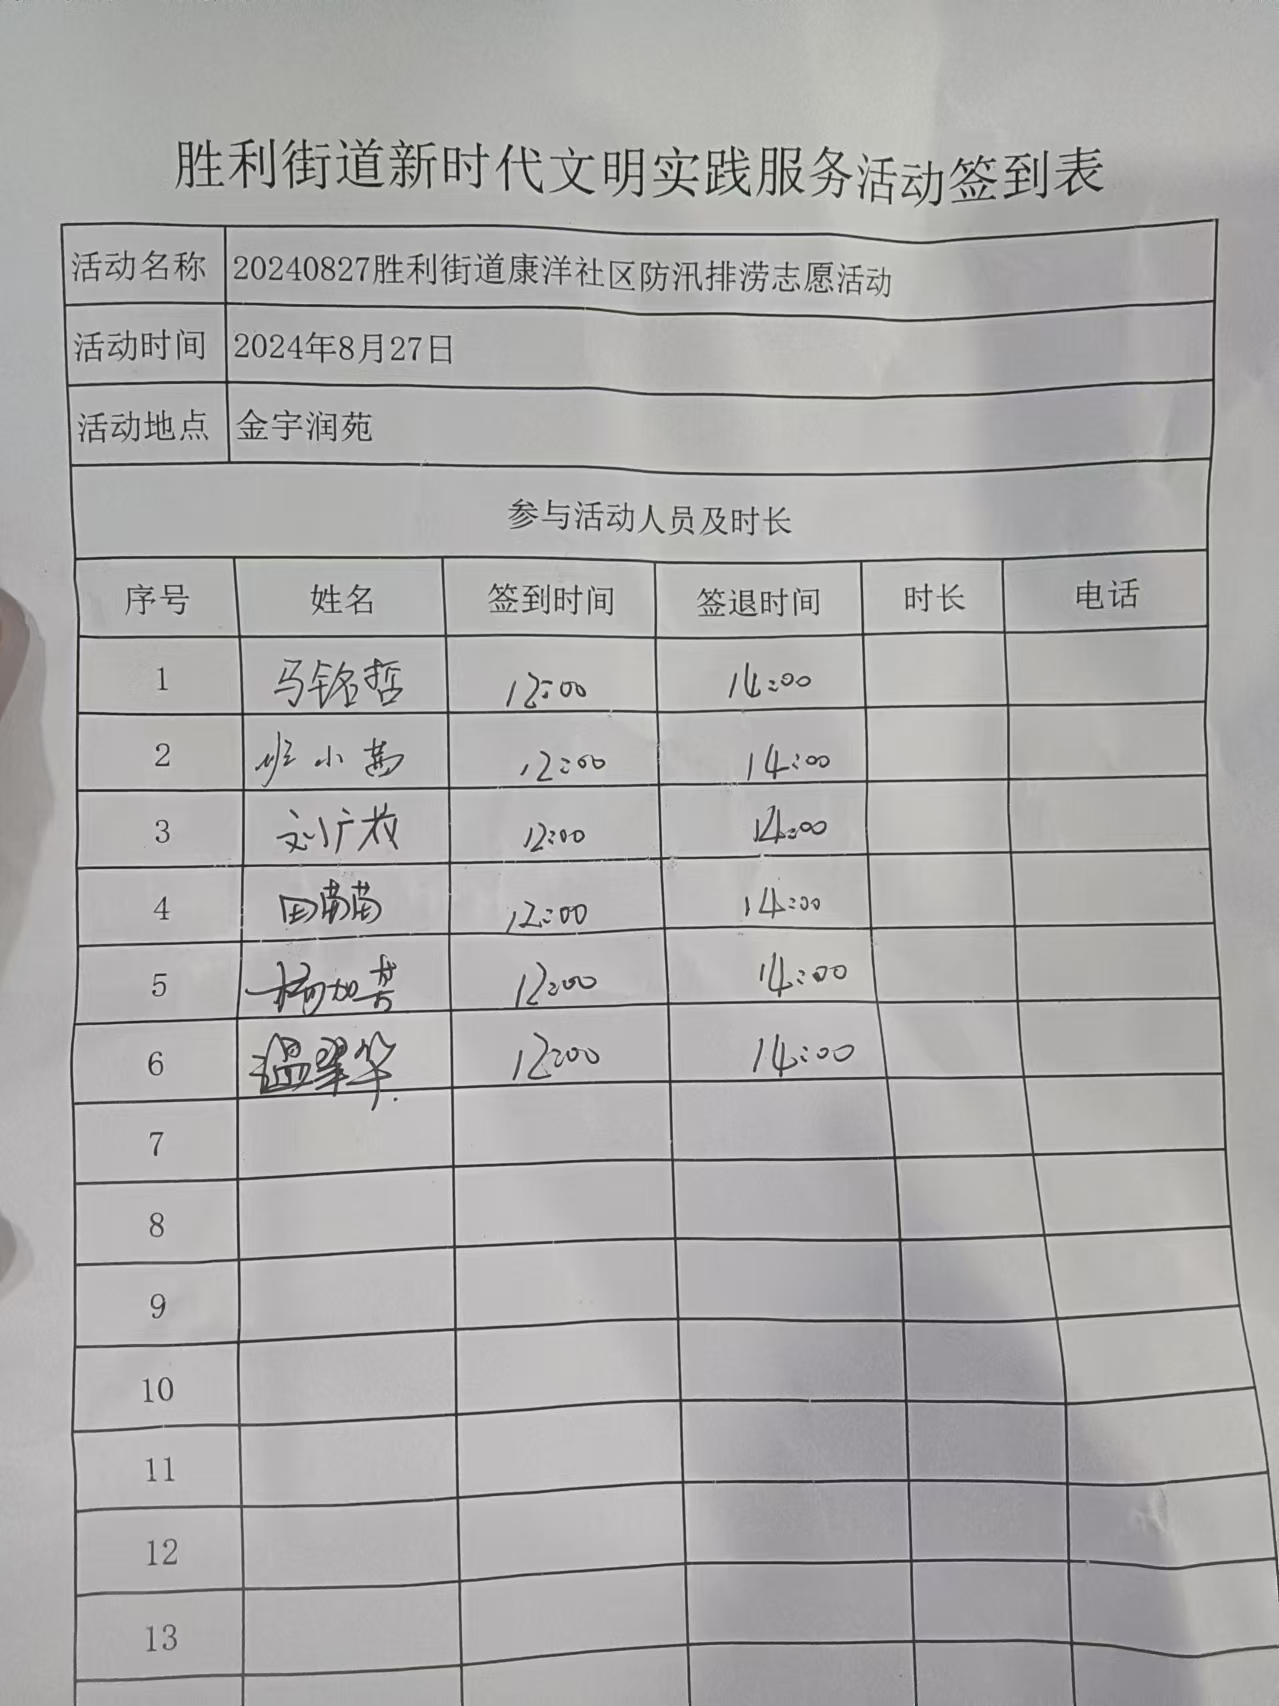 胜利街道新时代文明实践服务活动签到表
活动名称 20240827胜利街道康洋社区防汛排涝志愿活动
活动时间 2024年8月27日
活动地点 金宇润苑
参与活动人员及时长
序号 姓名 签到时间 签退时间 时长 电话
1 马铭哲 12:00 14:00
2 班小茜 12:00 14:00
3 刘广茂 12:00 14:00
4 田萌萌 12:00 14:00
5 杨加芳 12:00 14:00
6 温翠华 12:00 14:00
7
8
9
10
11
12
13